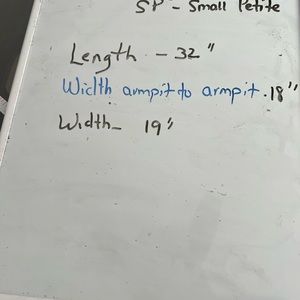 SP - Small Petite
Length - 32"
Width armpit to armpit - 18"
Width - 19"